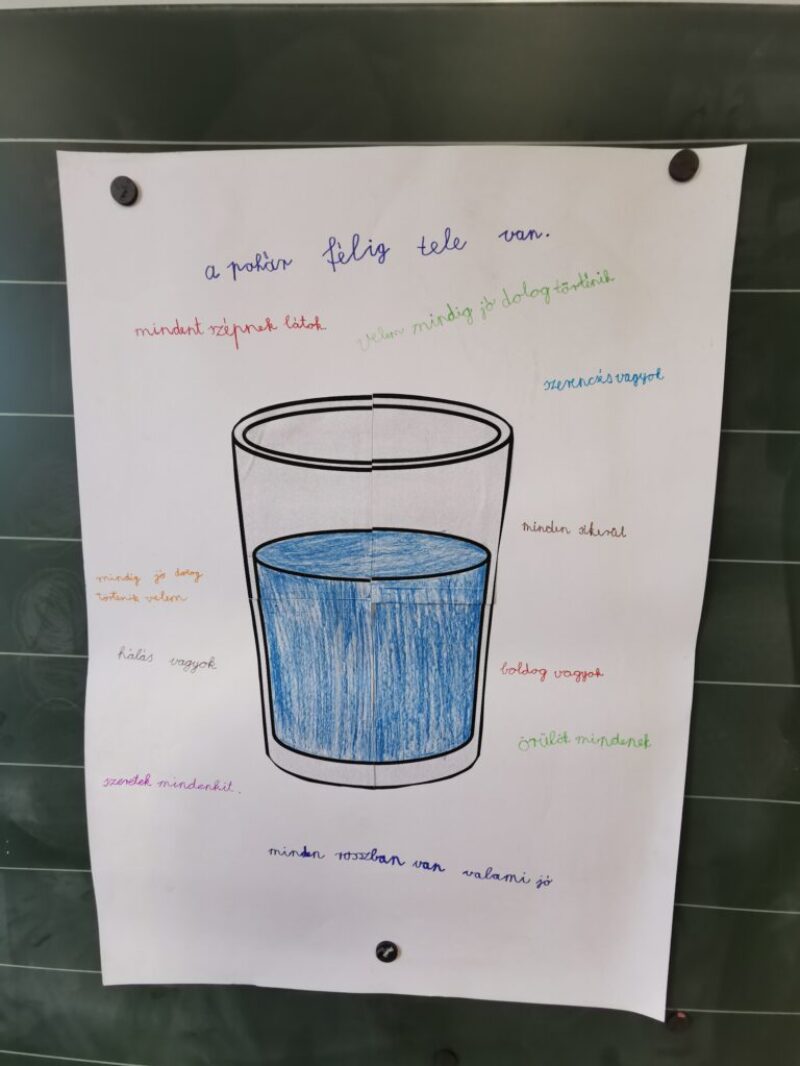 a pohár félig tele van.
mindent szépnek látok
velem mindig jó dolog történik
szerencsés vagyok
minden sikerül
mindig jó dolog
történik velem
hálás vagyok
boldog vagyok
örülök mindenek
szeretek mindenkit.
minden rosszban van valami jó